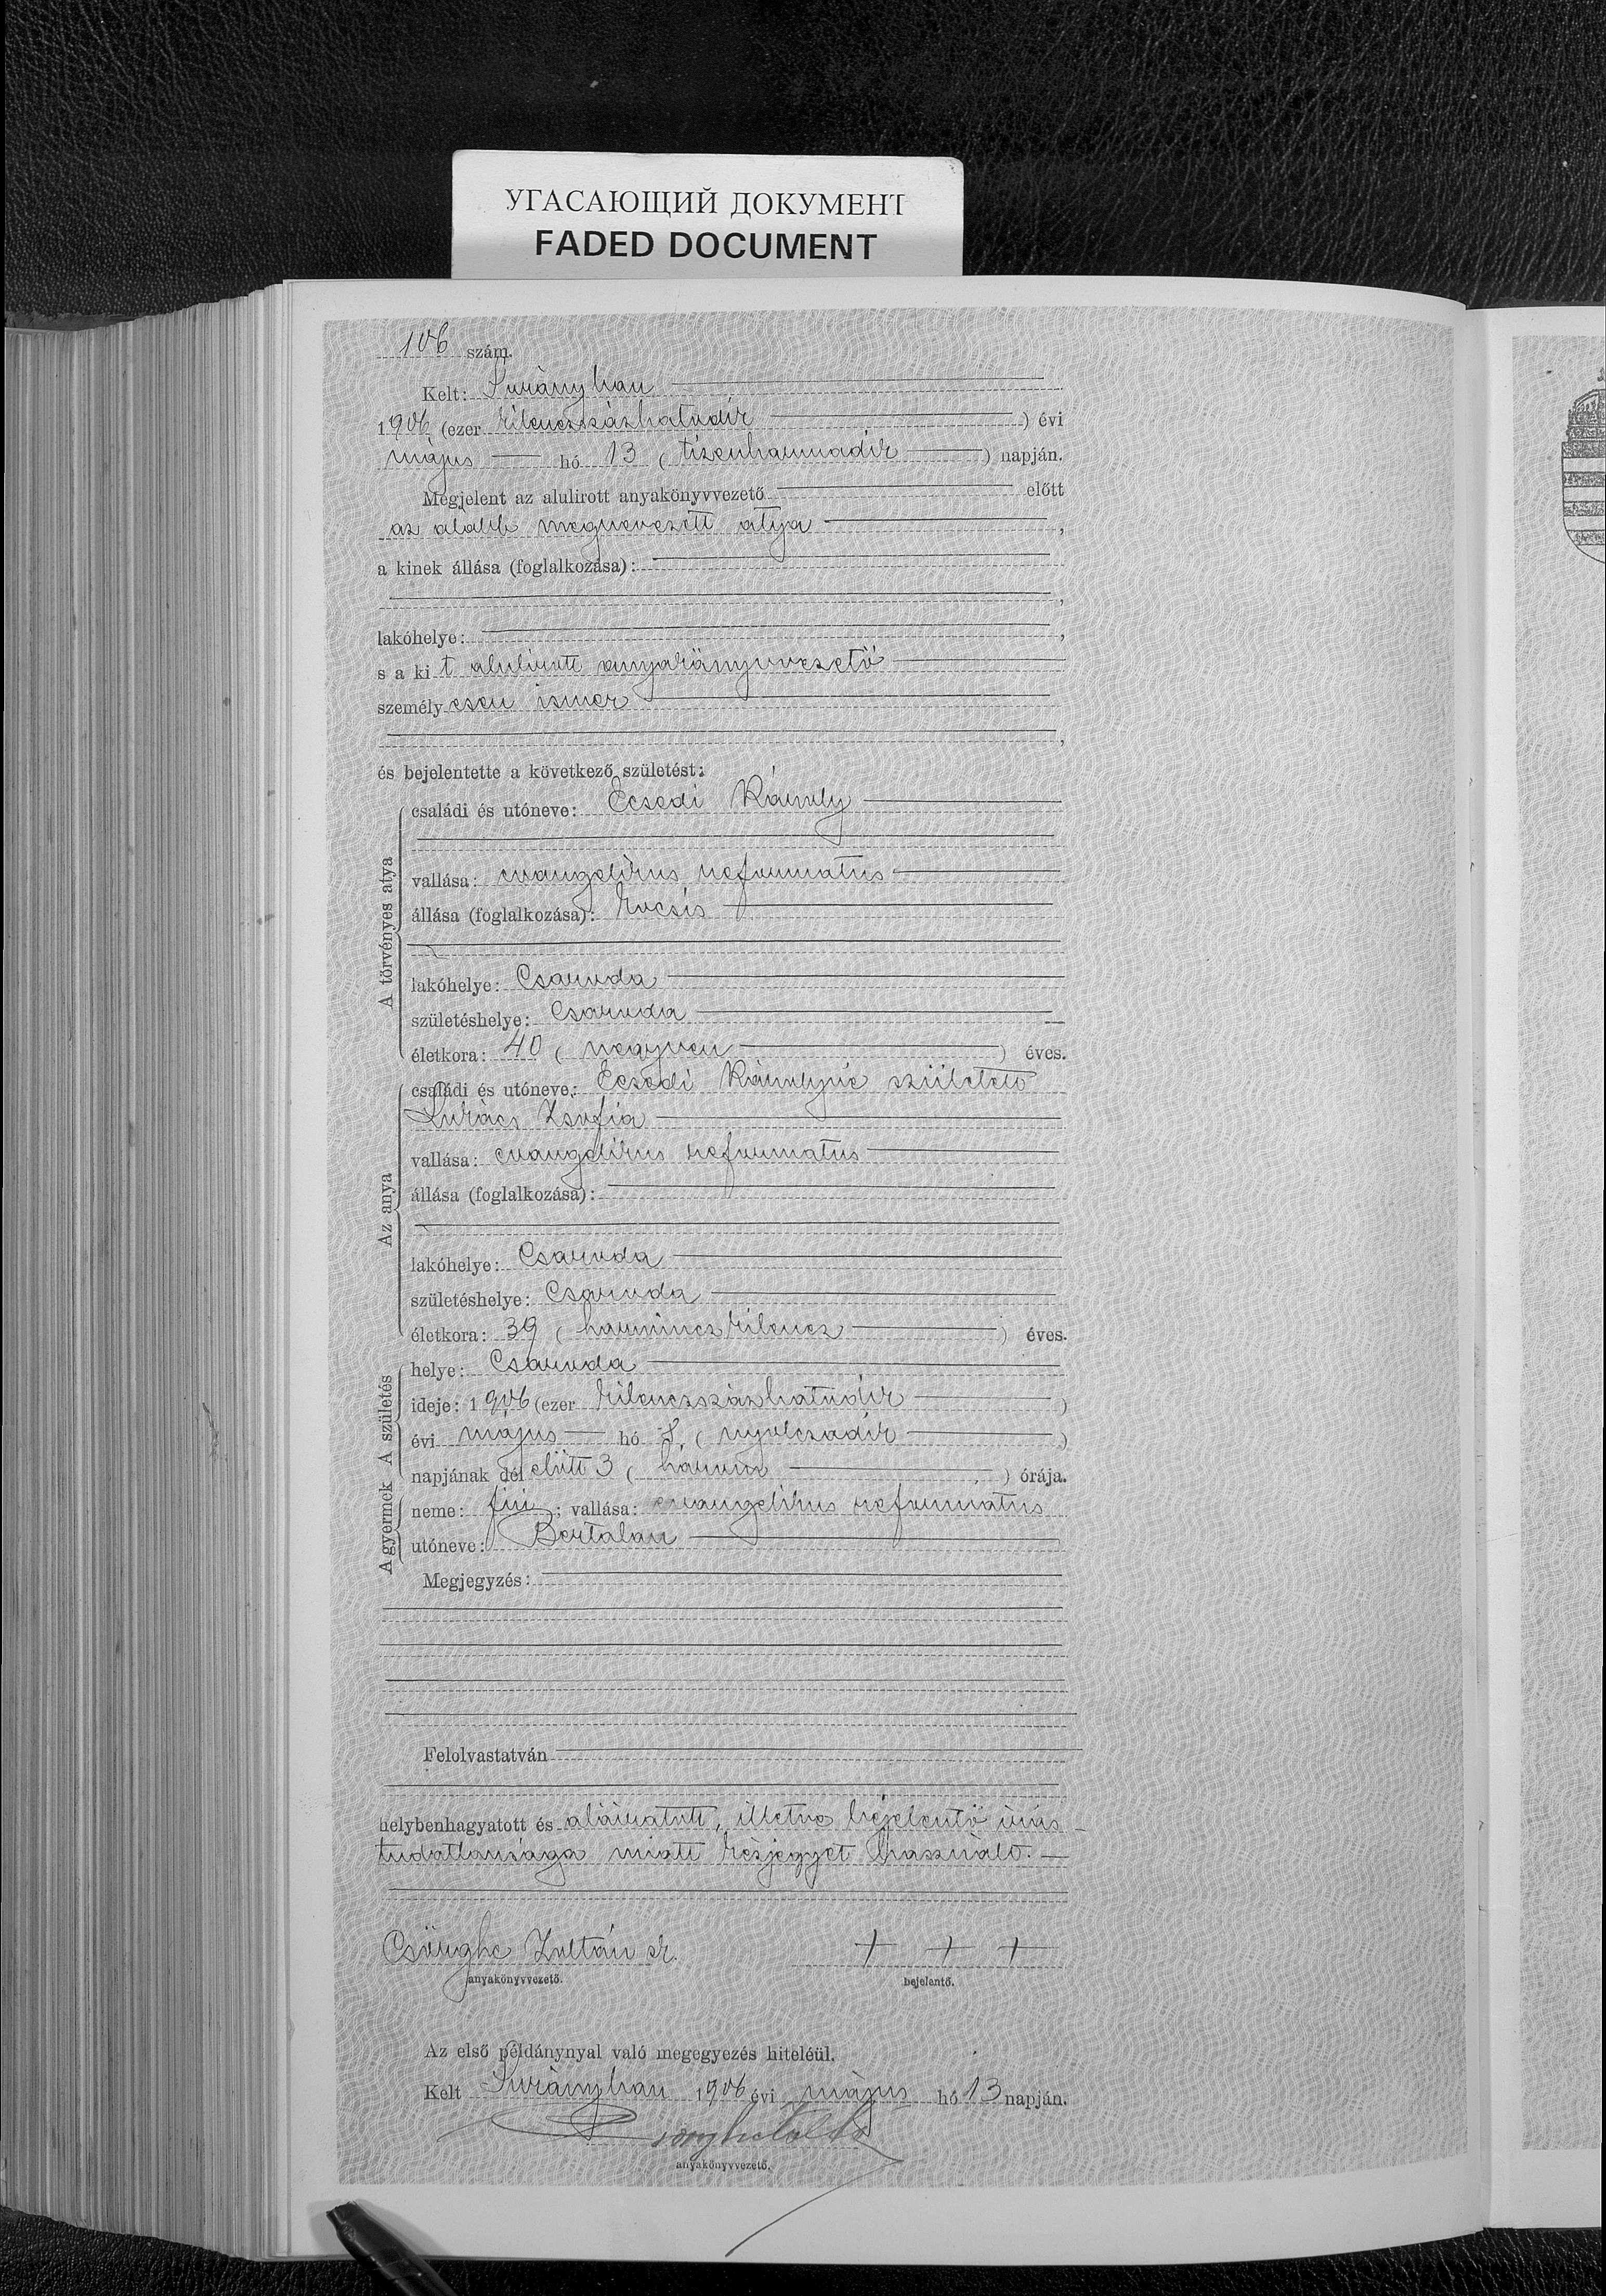 УГАСАЮЩИЙ ДОКУМЕНТ
FADED DOCUMENT
106 szám.
Kelt: Surányban
1906 (ezer kilenczszázhatodik ) évi
május hó 13 ( tizenharmadik ) napján.
Megjelent az alulirott anyakönyvvezető előtt
az alább megnevezett atya ,
a kinek állása (foglalkozása):
,
lakóhelye: ,
s a kit alulirott anyakönyvvezető
személyesen ismer
,
és bejelentette a következő születést:
A törvényes atya
családi és utóneve: Ecsedi Károly
vallása: evangelikus reformatus
állása (foglalkozása): kocsis
lakóhelye: Csaroda
születéshelye: Csaroda
életkora: 40 ( negyven ) éves.
Az anya
családi és utóneve: Ecsedi Károlyné született
Lukács Zsofia
vallása: evangelikus reformatus
állása (foglalkozása):
lakóhelye: Csaroda
születéshelye: Csaroda
életkora: 39 ( harminczkilencz ) éves.
A születés
helye: Csaroda
ideje: 1906 (ezer kilenczszázhatodik )
évi május hó 8. ( nyolczadik )
napjának dél előtt 3 ( három ) órája.
A gyermek
neme: fiú ; vallása: evangelikus reformatus
utóneve: Bertalan
Megjegyzés:
Felolvastatván
helybenhagyatott és aláiratott, illetve bejelentő irás-
tudatlansága miatt kézjegyet használt.
Csörghe Zoltán sk. + + +
anyakönyvvezető. bejelentő.
Az első példánynyal való megegyezés hiteléül.
Kelt Surányban 1906 évi május hó 13 napján.
anyakönyvvezető.